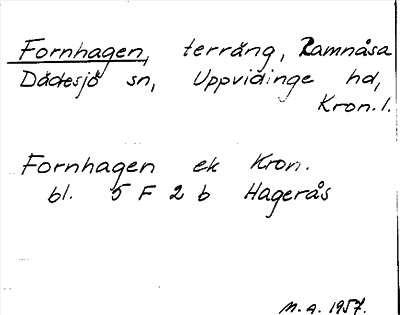 Fornhagen, terräng, Ramnåsa
Dädesjö sn, Uppvidinge hd,
Kron. l.
Fornhagen ek Kron.
bl. 5 F 2 b Hagerås
M.a. 1957.